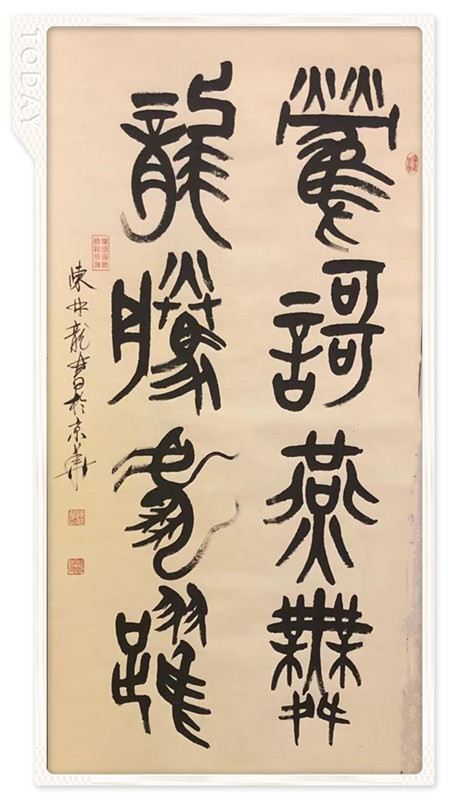 鶯謌燕舞
龍騰虎躍
陳 龍書於京華
TODAY